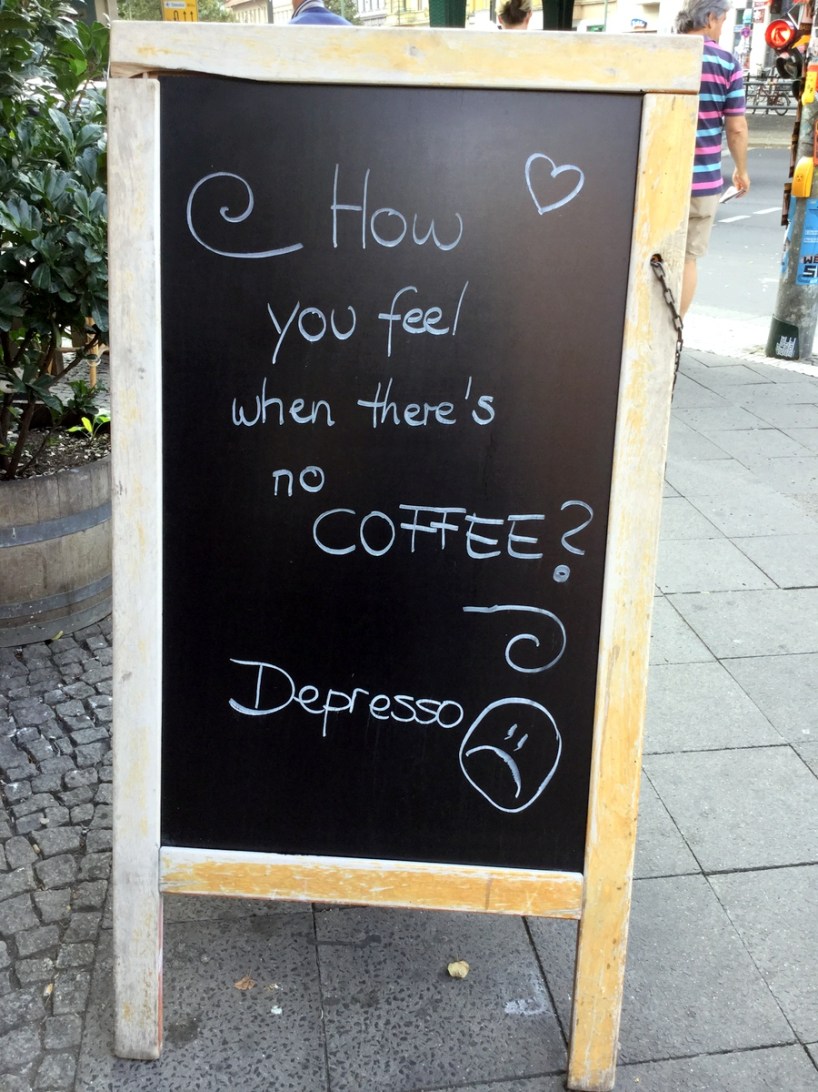 How
you feel
when there's
no
COFFEE?
Depresso